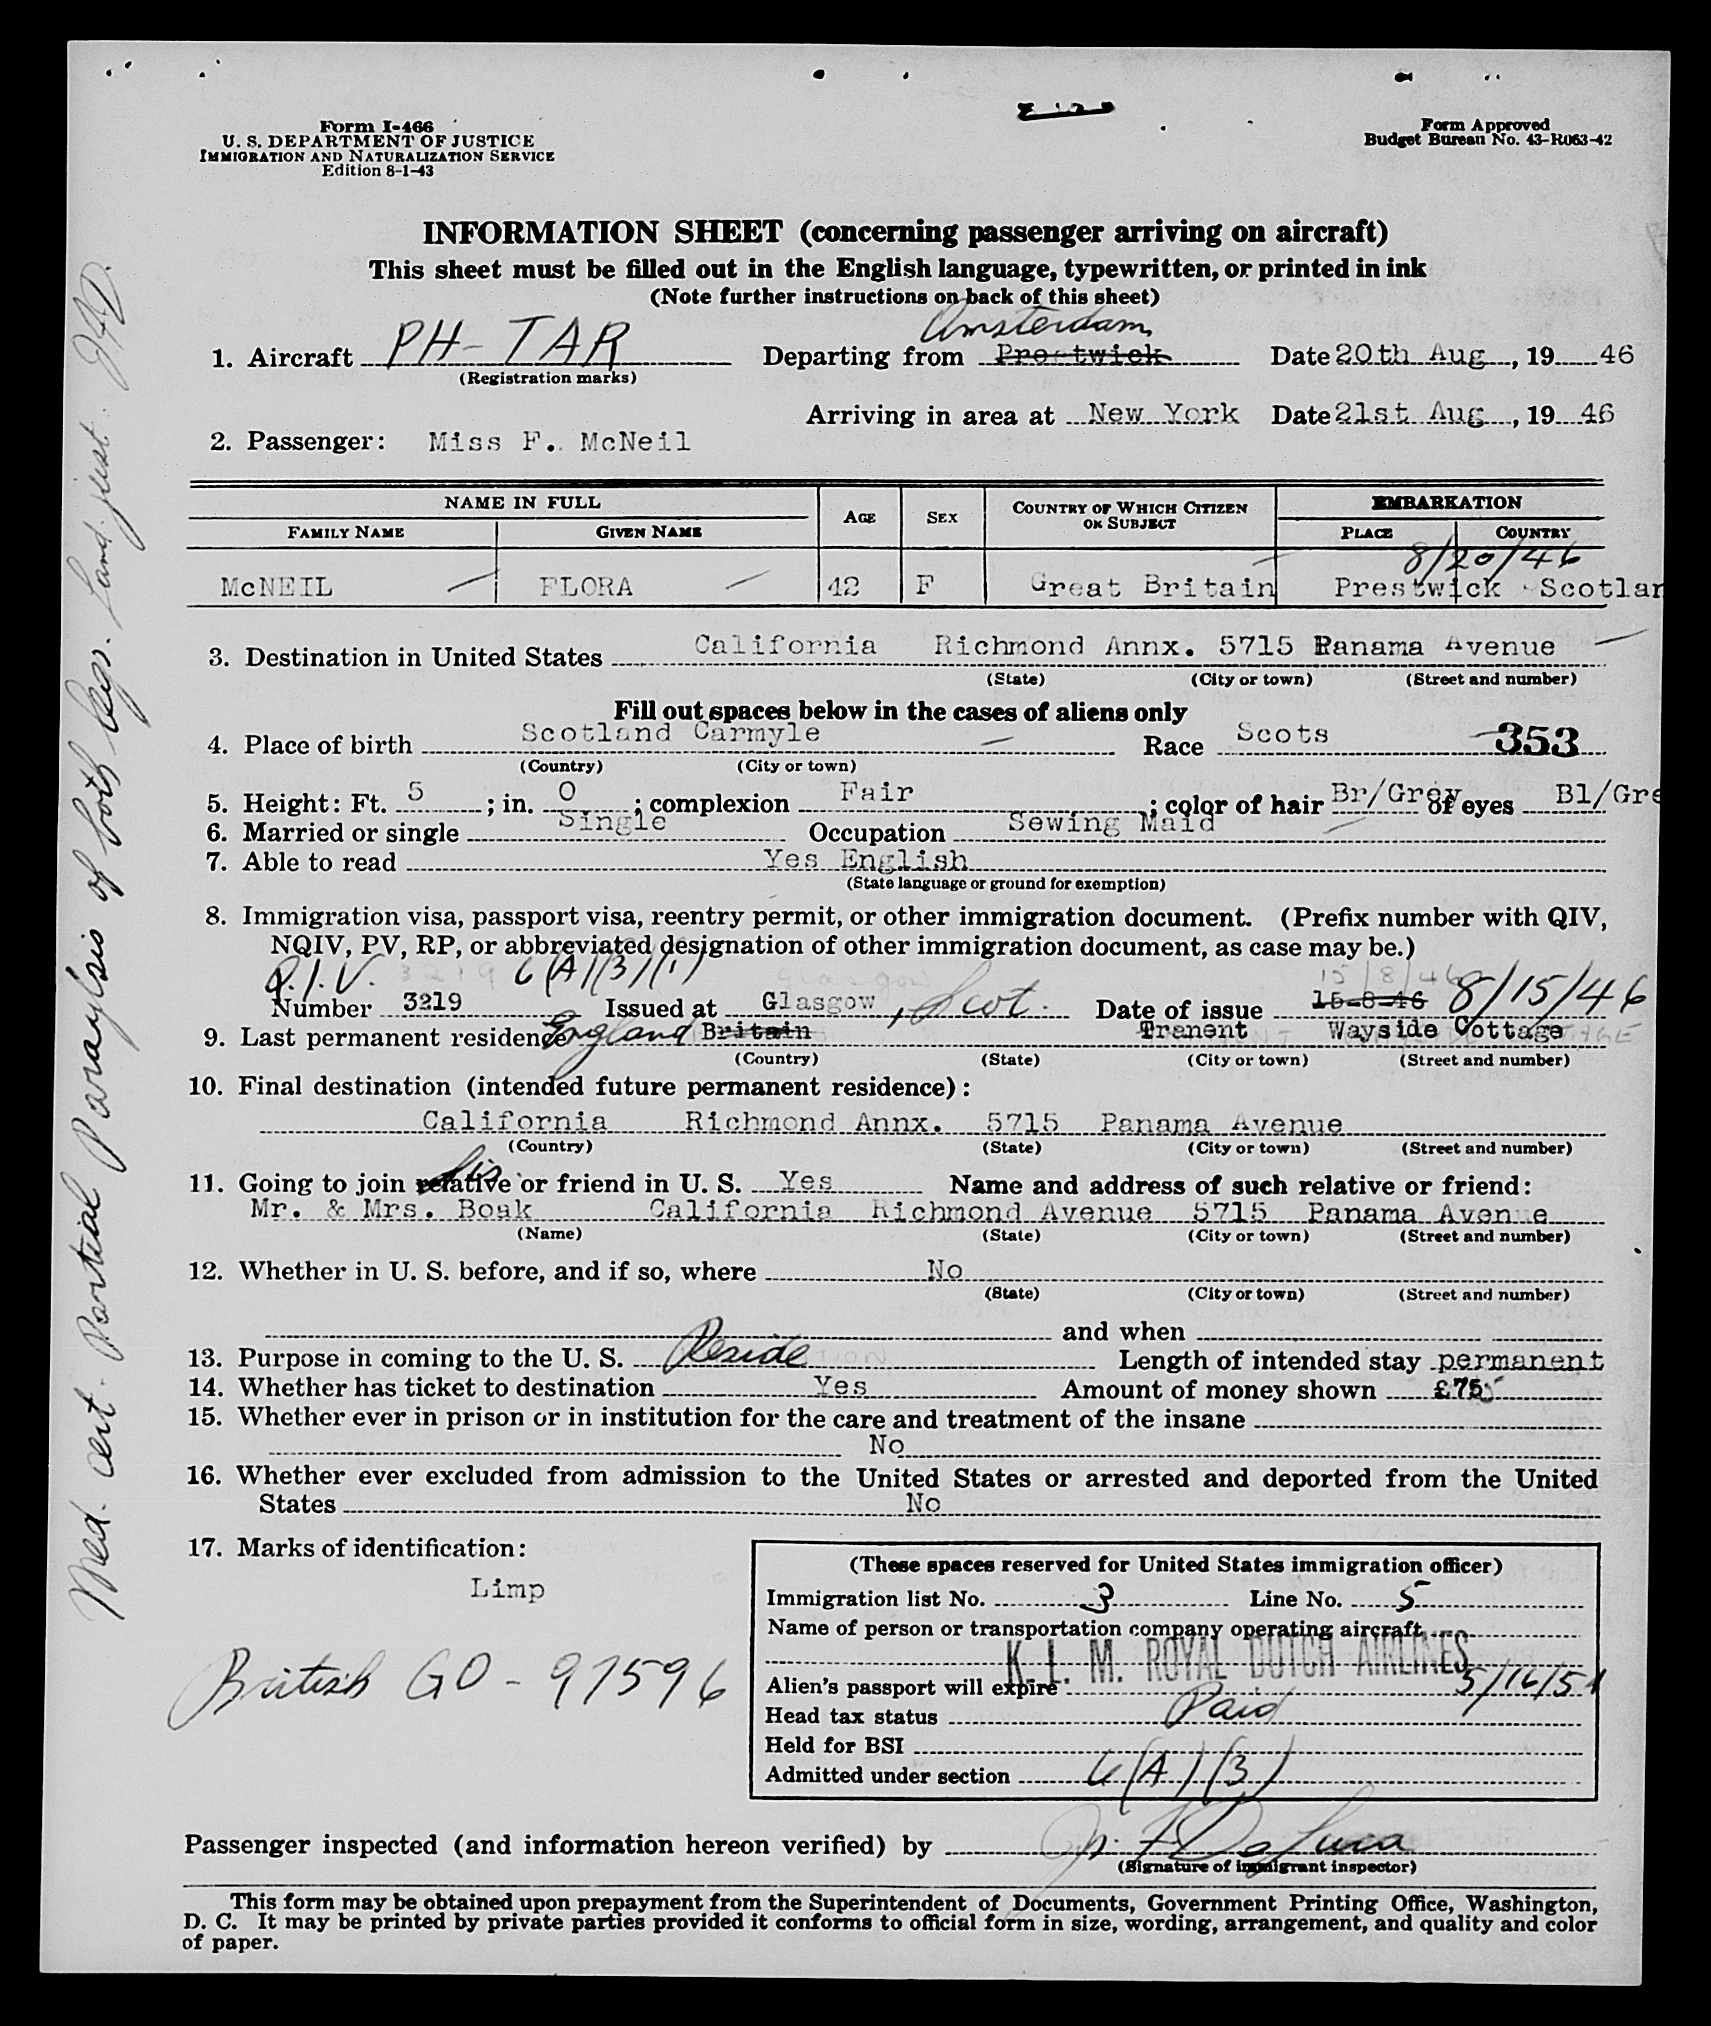 Form I-466
U. S. DEPARTMENT OF JUSTICE
IMMIGRATION AND NATURALIZATION SERVICE
Edition 8-1-43
Form Approved
Budget Bureau No. 43-R063-42
INFORMATION SHEET (concerning passenger arriving on aircraft)
This sheet must be filled out in the English language, typewritten, or printed in ink
(Note further instructions on back of this sheet)
Amsterdam
1. Aircraft PH-TAR Departing from Prestwick Date 20th Aug , 19 46
(Registration marks)
Arriving in area at New York Date 21st Aug , 19 46
2. Passenger: Miss F. McNeil
NAME IN FULL AGE SEX COUNTRY OF WHICH CITIZEN OR SUBJECT EMBARKATION
FAMILY NAME GIVEN NAME PLACE COUNTRY
8/20/46
McNEIL FLORA 42 F Great Britain Prestwick Scotlan
3. Destination in United States California Richmond Annx. 5715 Panama Avenue
(State) (City or town) (Street and number)
Fill out spaces below in the cases of aliens only
4. Place of birth Scotland Carmyle Race Scots 353
(Country) (City or town)
5. Height: Ft. 5 ; in. 0 ; complexion Fair ; color of hair Br/Grey of eyes Bl/Gre
6. Married or single Single Occupation Sewing Maid
7. Able to read Yes English
(State language or ground for exemption)
8. Immigration visa, passport visa, reentry permit, or other immigration document. (Prefix number with QIV,
NQIV, PV, RP, or abbreviated designation of other immigration document, as case may be.)
Q.I.V. 3219 6(A)(3)(1) 15/8/46
Number 3219 Issued at Glasgow, Scot. Date of issue 15-8-46 8/15/46
9. Last permanent residence England Britain Tranent Wayside Cottage
(Country) (State) (City or town) (Street and number)
10. Final destination (intended future permanent residence):
California Richmond Annx. 5715 Panama Avenue
(Country) (State) (City or town) (Street and number)
Sis
11. Going to join relative or friend in U. S. Yes Name and address of such relative or friend:
Mr. & Mrs. Boak California Richmond Avenue 5715 Panama Avenue
(Name) (State) (City or town) (Street and number)
12. Whether in U. S. before, and if so, where No
(State) (City or town) (Street and number)
and when
13. Purpose in coming to the U. S. Reside Length of intended stay permanent
14. Whether has ticket to destination Yes Amount of money shown £75
15. Whether ever in prison or in institution for the care and treatment of the insane
No
16. Whether ever excluded from admission to the United States or arrested and deported from the United
States No
17. Marks of identification:
Limp
British GO-97596
(These spaces reserved for United States immigration officer)
Immigration list No. 3 Line No. 5
Name of person or transportation company operating aircraft
K. L. M. ROYAL DUTCH AIRLINES
Alien's passport will expire 5/16/51
Head tax status Paid
Held for BSI
Admitted under section 6(A)(3)
Passenger inspected (and information hereon verified) by
(Signature of immigrant inspector)
This form may be obtained upon prepayment from the Superintendent of Documents, Government Printing Office, Washington,
D. C. It may be printed by private parties provided it conforms to official form in size, wording, arrangement, and quality and color
of paper.
Med. cert. Partial Paraylsis of both legs.